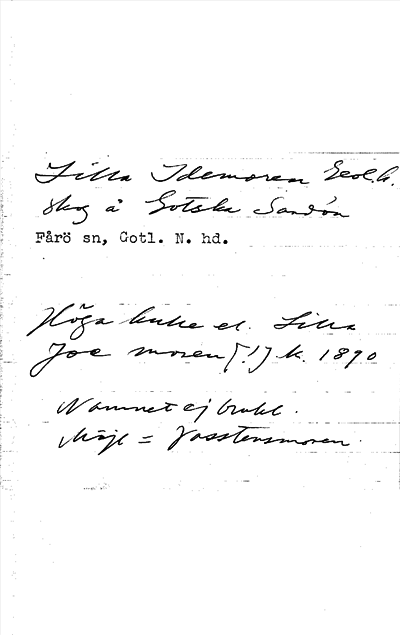 Lilla Idemoren Geol.k.
skog å Gotska Sandön
Fårö sn, Gotl. N. hd.
Höga kulle el. Lilla
Joe moren [!] k. 1890
Namnet ej brukl.
Möjl = Vasstensmoren.